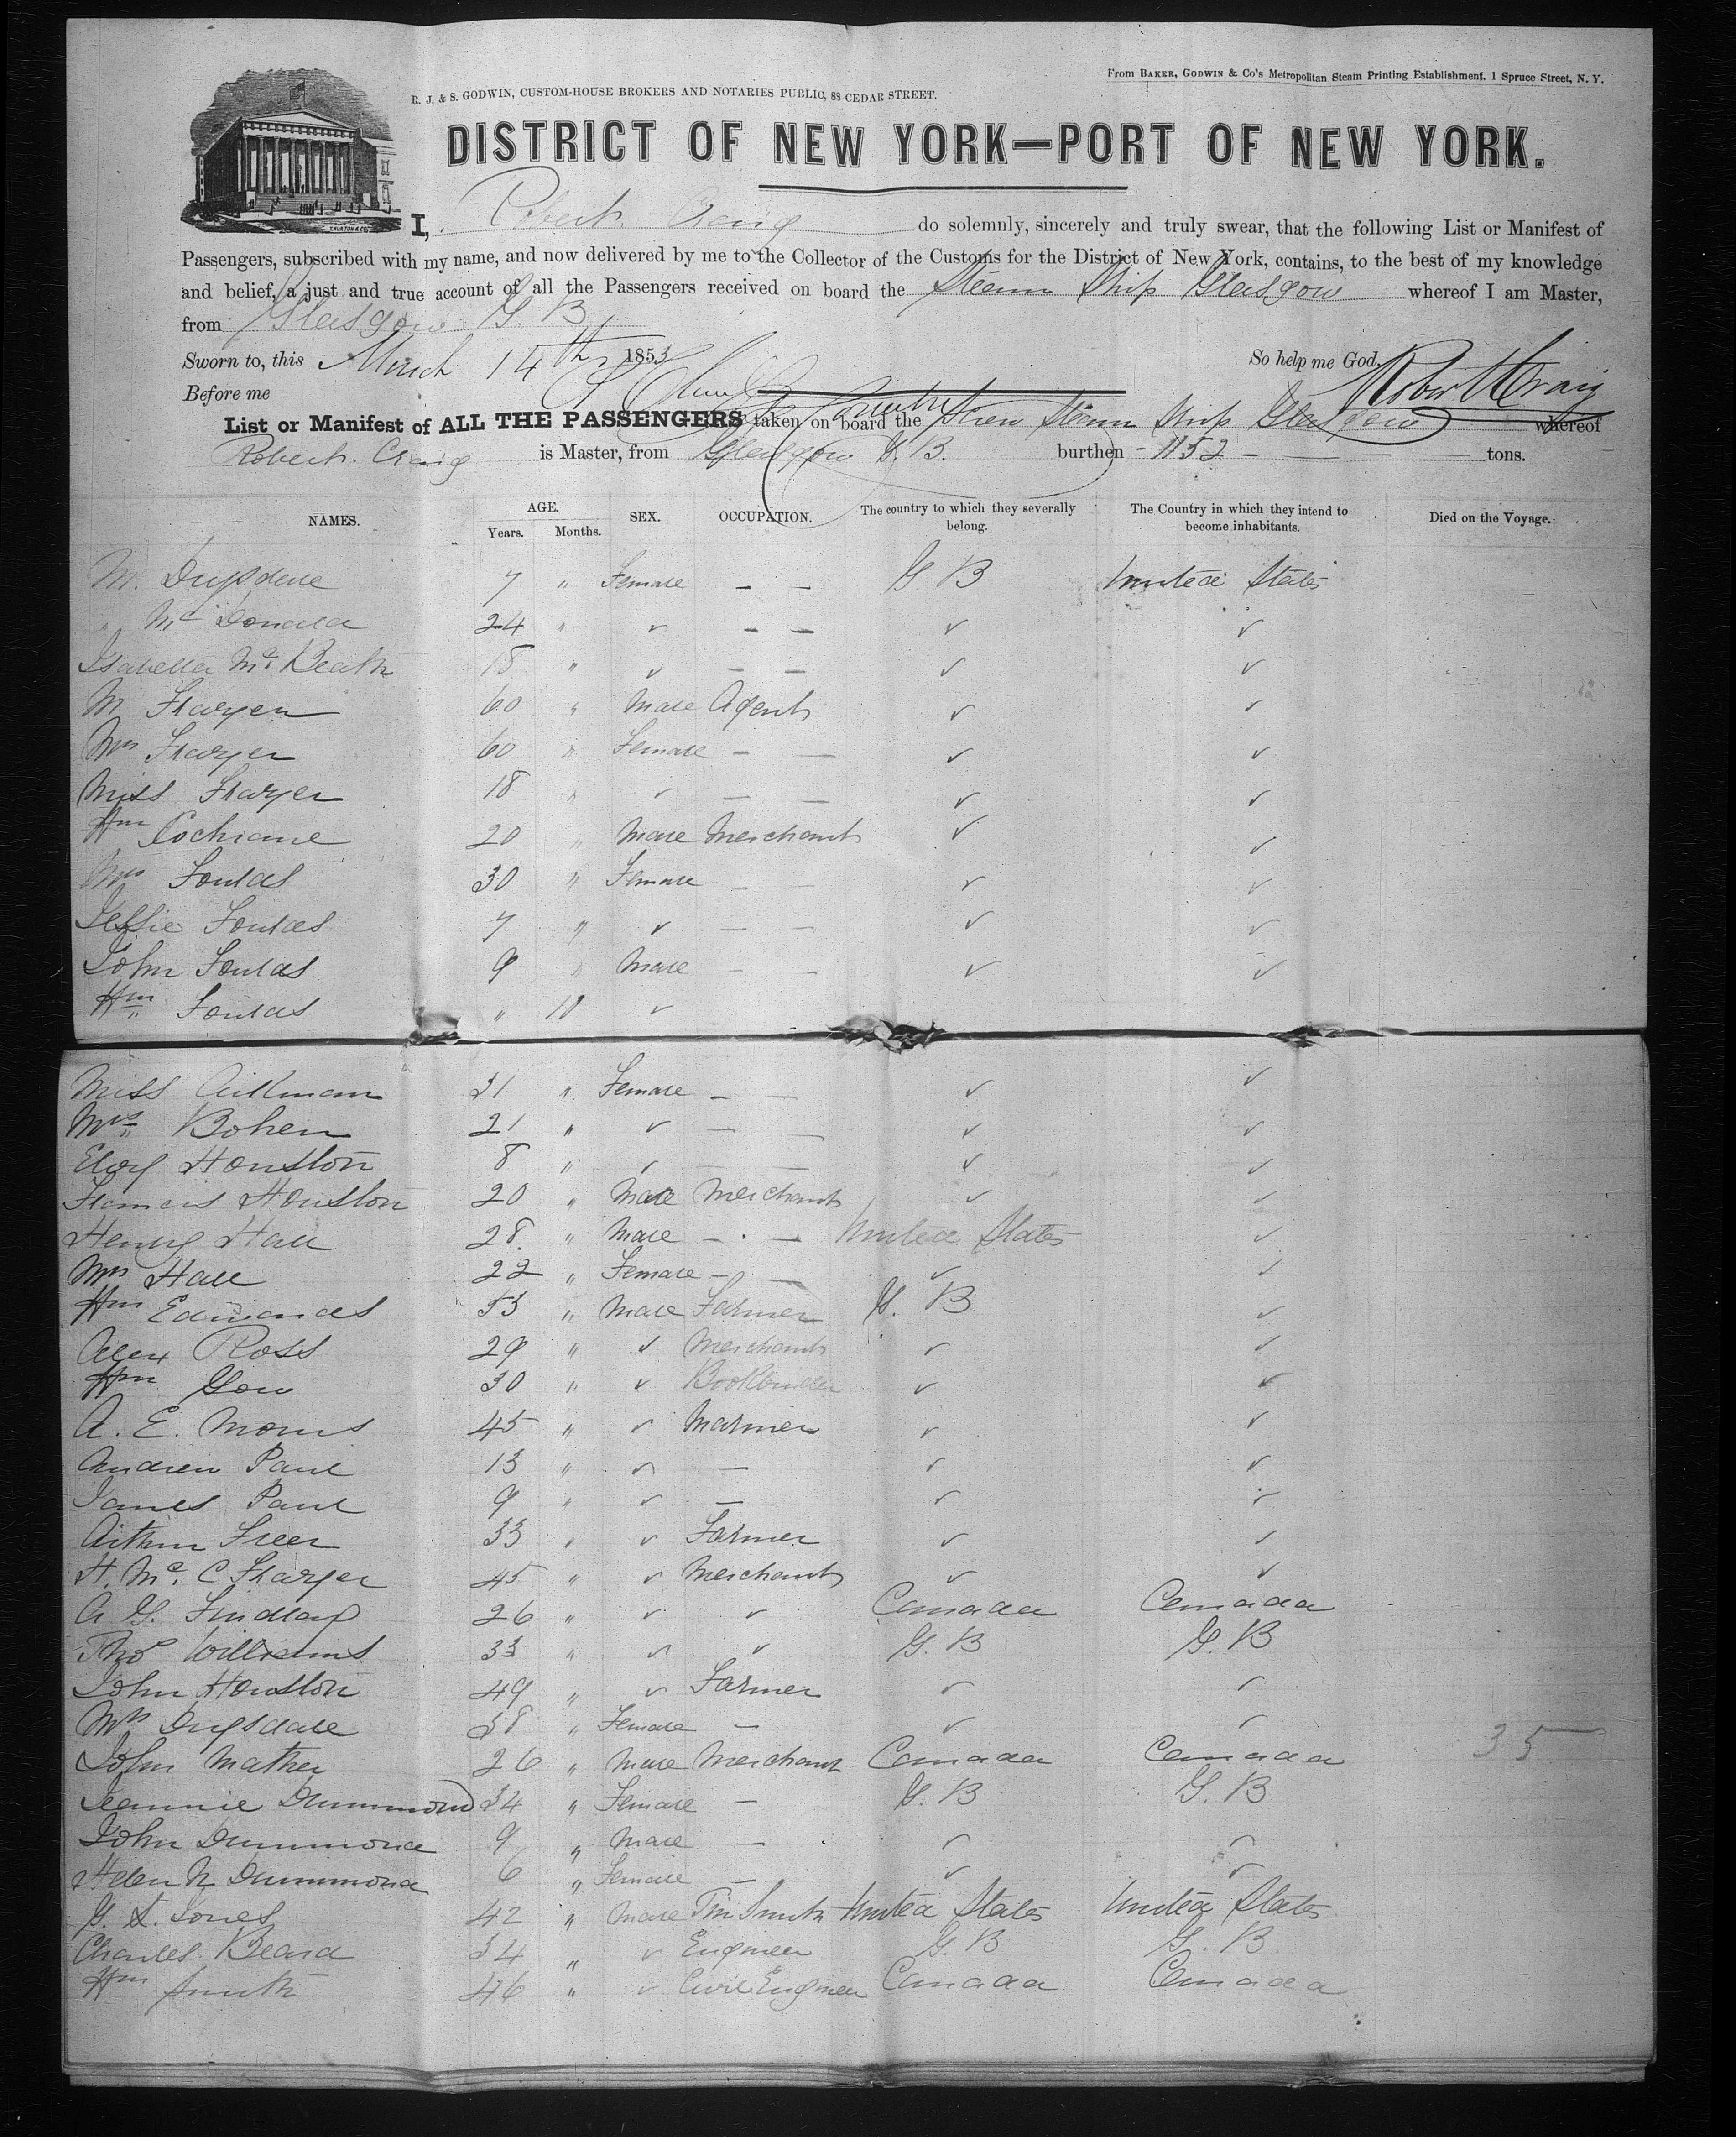 From BAKER, GODWIN & Co's Metropolitan Steam Printing Establishment, 1 Spruce Street, N. Y.
R. J. & S. GODWIN, CUSTOM-HOUSE BROKERS AND NOTARIES PUBLIC, 88 CEDAR STREET.
DISTRICT OF NEW YORK—PORT OF NEW YORK.
I, Robert Craig do solemnly, sincerely and truly swear, that the following List or Manifest of
Passengers, subscribed with my name, and now delivered by me to the Collector of the Customs for the District of New York, contains, to the best of my knowledge
and belief, a just and true account of all the Passengers received on board the Steam Ship Glasgow whereof I am Master,
from Glasgow G. B
Sworn to, this March 14th 1853 So help me God. Robert Craig
Before me
List or Manifest of ALL THE PASSENGERS taken on board the Screw Steam Ship Glasgow whereof
Robert Craig is Master, from Glasgow G. B. burthen - 1152 - tons.
NAMES. AGE. Years. Months. SEX. OCCUPATION. The country to which they severally belong. The Country in which they intend to become inhabitants. Died on the Voyage.
M. Drysdale 7 " Female — — G. B United States
" Mc Donald 24 " ✓ — — ✓ ✓
Isabella Mc Beath 18 " ✓ — — ✓ ✓
M Frazer 60 " Male Agent ✓ ✓
Mrs Frazer 60 " Female — — ✓ ✓
Miss Frazer 18 " ✓ — — ✓ ✓
Wm Cochrane 20 " Male Merchant ✓ ✓
Mrs Foulds 30 " Female — — ✓ ✓
Jessie Foulds 7 " ✓ — — ✓ ✓
John Foulds 9 " Male — — ✓ ✓
Wm Foulds " 10 ✓
Miss 31 " Female — — ✓ ✓
Mrs Bohen 21 " ✓ — — ✓ ✓
Houston 8 " ✓ — — ✓ ✓
Francis Houston 20 " Male Merchant ✓ ✓
Henry Hall 28 " Male — — United States ✓
Mrs Hall 22 " Female — — ✓ ✓
Wm Edmonds 53 " Male Farmer G. B ✓
Alex Ross 29 " ✓ Merchant ✓ ✓
Wm Gow 30 " ✓ Bookbinder ✓ ✓
A. E. Morris 45 " ✓ Mariner ✓ ✓
Andrew Paul 13 " ✓ — ✓ ✓
James Paul 9 " ✓ — ✓ ✓
Arthur Freer 33 " ✓ Farmer ✓ ✓
H. Mc. C Frazer 45 " ✓ Merchant ✓ ✓
A G. Findlay 26 " ✓ ✓ Canada Canada
Thos Williams 33 " ✓ ✓ G. B G. B
John Houston 49 " ✓ Farmer ✓ ✓
Mrs Drysdale 38 " Female — ✓ ✓
John Mather 26 " Male Merchant Canada Canada 35
Jeannie Drummond 34 " Female — G. B G. B
John Drummond 9 " Male — ✓ ✓
Helen N Drummond 6 " Female — ✓ ✓
G. S. Jones 42 " Male Tin Smith United States United States
Charles Beard 34 " ✓ Engineer G. B G. B
Wm Smith 46 " ✓ Civil Engineer Canada Canada